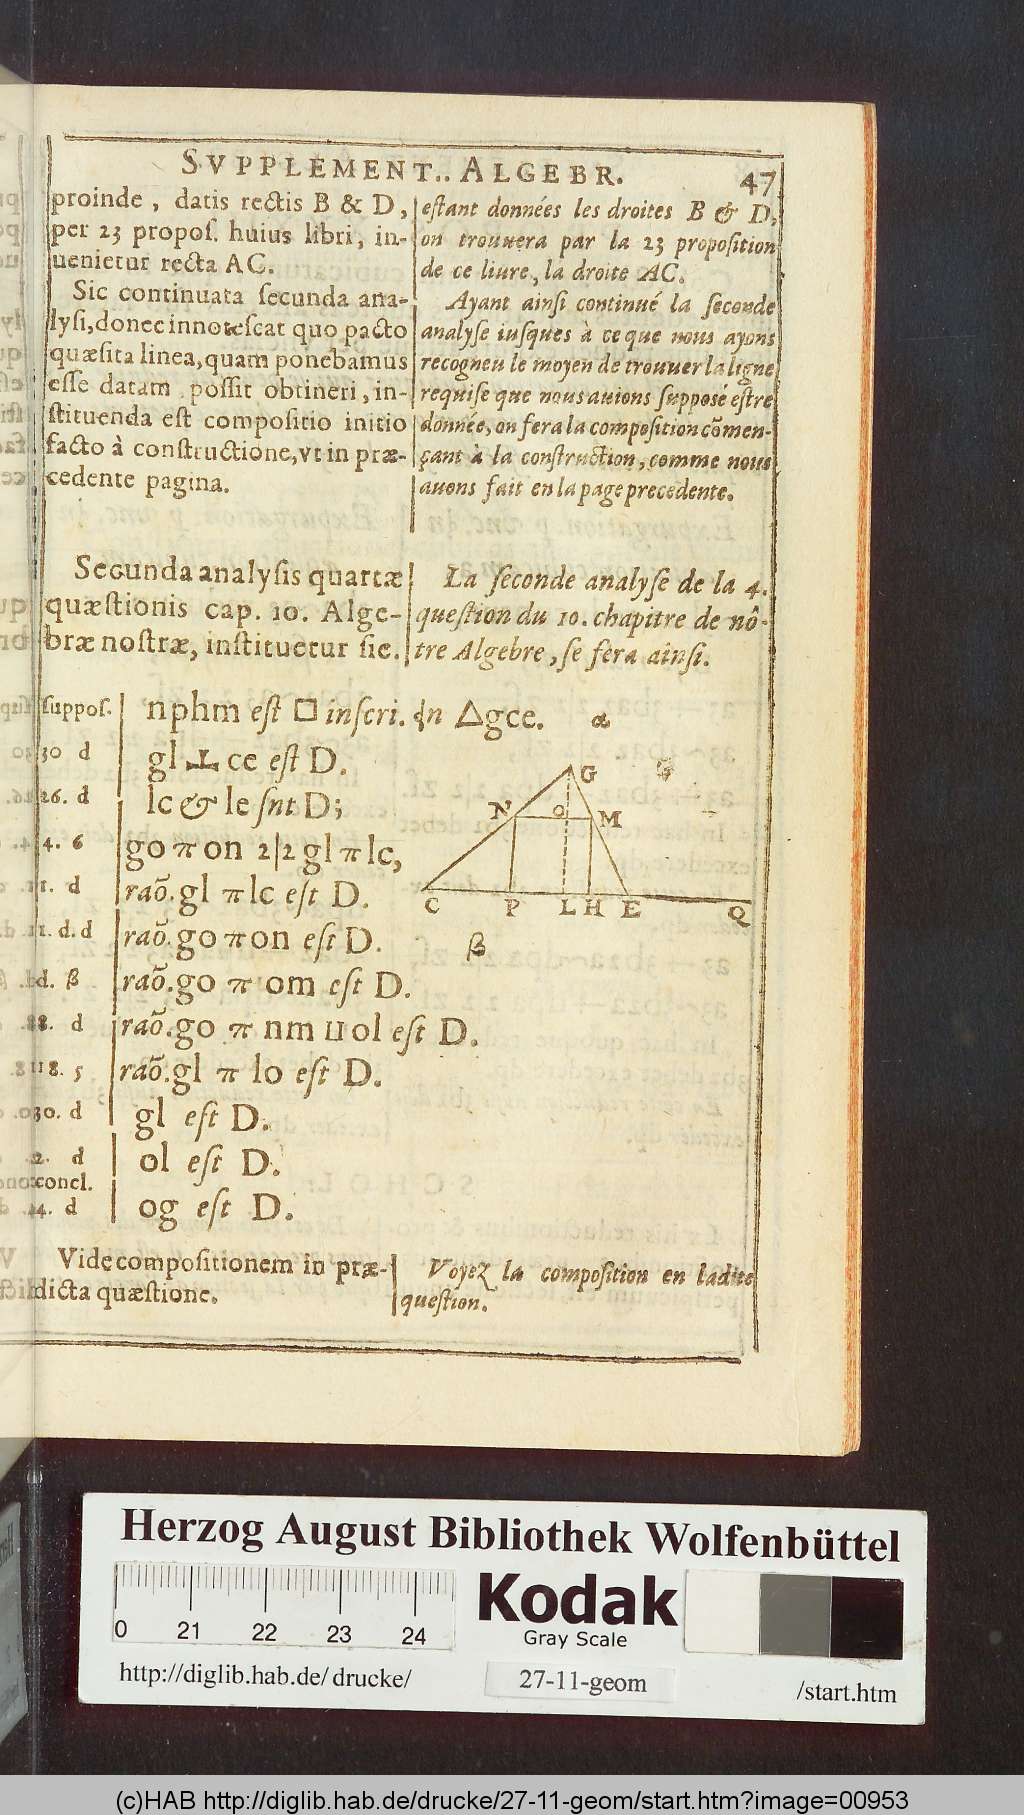 SVPPLEMENT.. ALGEBR. 47
proinde, datis rectis B & D,
per 23 propos. huius libri, in-
uenietur recta AC.
Sic continuata secunda ana-
lysi, donec innotescat quo pacto
quæsita linea, quam ponebamus
esse datam possit obtineri, in-
stituenda est compositio initio
facto à constructione, vt in præ-
cedente pagina.
estant données les droites B & D,
on trouuera par la 23 proposition
de ce liure, la droite AC.
Ayant ainsi continué la seconde
analyse iusques à ce que nous ayons
recogneu le moyen de trouuer la ligne
requise que nous auions supposé estre
donnée, on fera la composition cõmen-
çant à la construction, comme nous
auons fait en la page precedente.
Secunda analysis quartæ
quæstionis cap. 10. Alge-
bræ nostræ, instituetur sic.
La seconde analyse de la 4.
question du 10. chapitre de nô-
tre Algebre, se fera ainsi.
suppos. nphm est □ inscri. in △gce. α
30 d gl ⊥ ce est D.
26. d lc & le snt D;
4. 6 go π on 2|2 gl π lc,
d raõ. gl π lc est D.
d. d raõ. go π on est D.
d. β raõ. go π om est D.
d raõ. go π nm ⊔ ol est D.
8. 5 raõ. gl π lo est D.
30. d gl est D.
2. d ol est D.
concl.
4. d og est D.
G
N O M
C P L H E Q
β
Vide compositionem in præ-
dicta quæstione.
Voyez la composition en ladite
question.
Herzog August Bibliothek Wolfenbüttel
0 21 22 23 24
Kodak
Gray Scale
http://diglib.hab.de/drucke/ 27-11-geom /start.htm
(c)HAB http://diglib.hab.de/drucke/27-11-geom/start.htm?image=00953